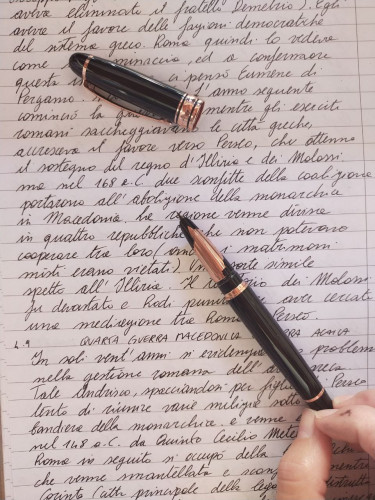 aveva eliminato il fratello Demetrio). Egli
aveva il favore delle fazioni democratiche
del sistema greco. Roma quindi lo vedeva
come minaccia, ed a confermare
questa ci pensò Eumene di
Pergamo. d'anno seguente
cominciò la mentre gli eserciti
romani saccheggiavano le città greche,
accresceva il favore verso Perseo, che ottenne
il sostegno del regno d'Illiria e dei Molossi
ma nel 168 a.C. due sconfitte della coalizione
portarono all'abolizione della monarchia
in Macedonia. La regione venne divisa
in quattro repubbliche che non potevano
cooperare tra loro matrimoni
misti erano vietati). sorte simile
spettò all'Illiria. Il dei Molossi
fu devastato e Rodi aver cercato
una mediazione tra Roma Perseo.
4.9 QUARTA GUERRA MACEDONICA ACAICA
In soli vent'anni si evidenziarono problemi
nella gestione romana dell'
Tale Andrisco, spacciandosi per figlio Perseo
tentò di riunire varie milizie sotto
bandiera della monarchia e venne
nel 148 a.C. da Quinto Cecilio
Roma in seguito si occupò della
che venne smantellata e
Corinto (città principale della